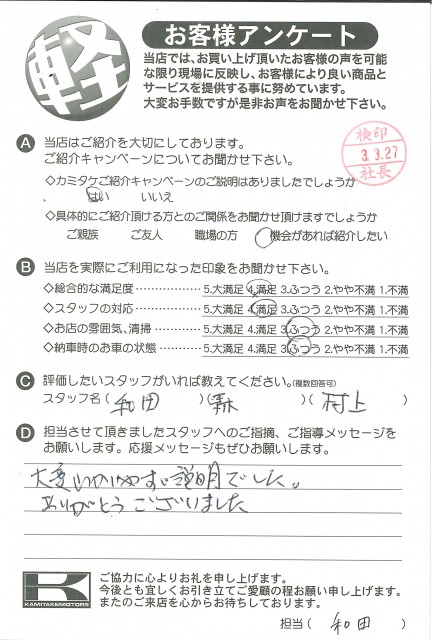 軽
お客様アンケート
当店では、お買い上げ頂いたお客様の声を可能
な限り現場に反映し、お客様により良い商品と
サービスを提供する事に努めています。
大変お手数ですが是非お声をお聞かせ下さい。
検印
3.3.27
社長
A 当店はご紹介を大切にしております。
ご紹介キャンペーンについてお聞かせ下さい。
◇カミタケご紹介キャンペーンのご説明はありましたでしょうか
はい いいえ
◇具体的にご紹介頂ける方とのご関係をお聞かせ頂けますでしょうか
ご親族 ご友人 職場の方 機会があれば紹介したい
B 当店を実際にご利用になった印象をお聞かせ下さい。
◇総合的な満足度 5.大満足 4.満足 3.ふつう 2.やや不満 1.不満
◇スタッフの対応 5.大満足 4.満足 3.ふつう 2.やや不満 1.不満
◇お店の雰囲気、清掃 5.大満足 4.満足 3.ふつう 2.やや不満 1.不満
◇納車時のお車の状態 5.大満足 4.満足 3.ふつう 2.やや不満 1.不満
C 評価したいスタッフがいれば教えてください。(複数回答可)
スタッフ名( 和田 )( 森 )( 村上 )
D 担当させて頂きましたスタッフへのご指摘、ご指導メッセージを
お願いします。応援メッセージもぜひお願いします。
大変わかりやすい説明でした。
ありがとうございました
K
KAMITAKEMOTORS
ご協力に心よりお礼を申し上げます。
今後とも宜しくお引き立てご愛顧の程お願い申し上げます。
またのご来店を心からお待ちしております。
担当( 和田 )